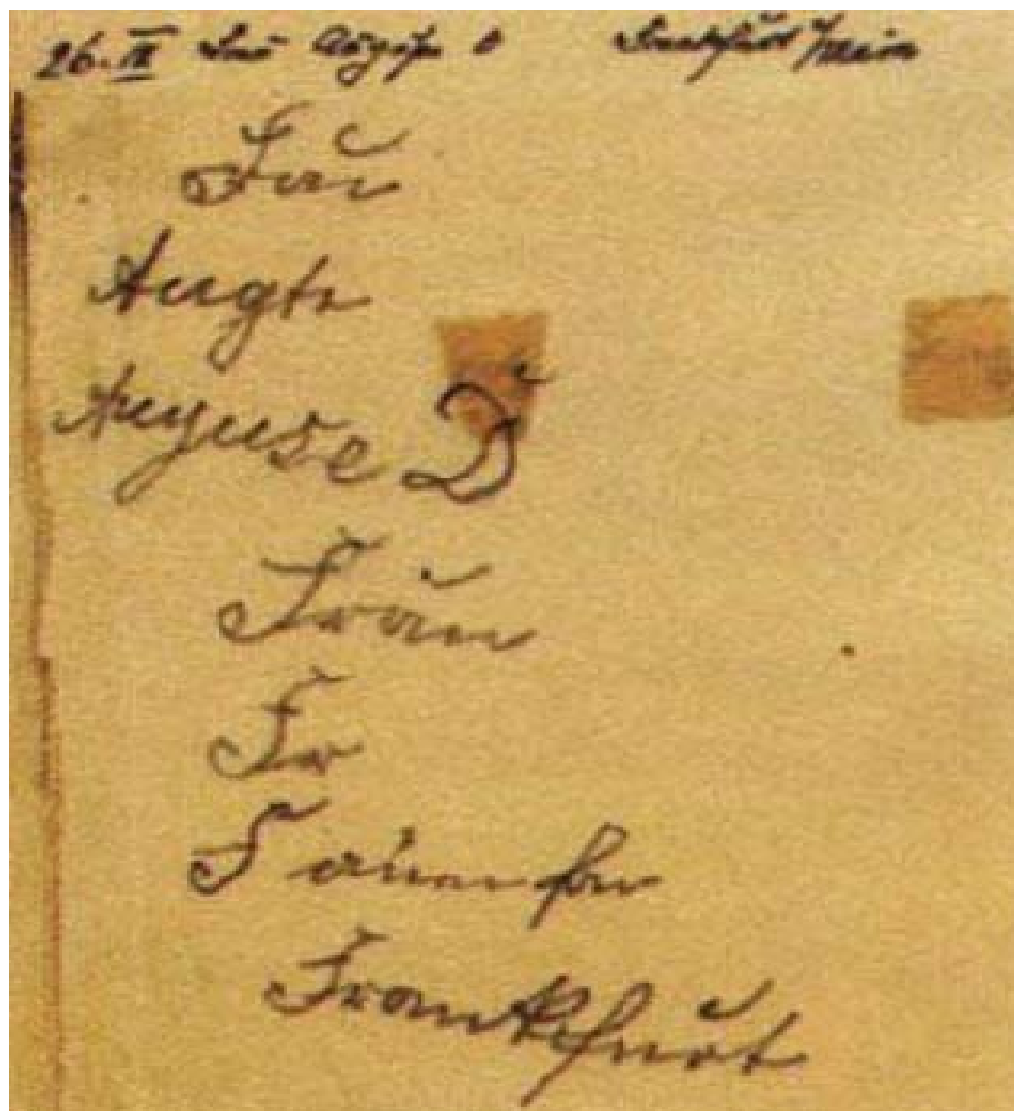 26. IX Frau Auguste D Frankfurt/Main
Fau
Augte
Auguse D
Fraun
Fr
Frankfurt